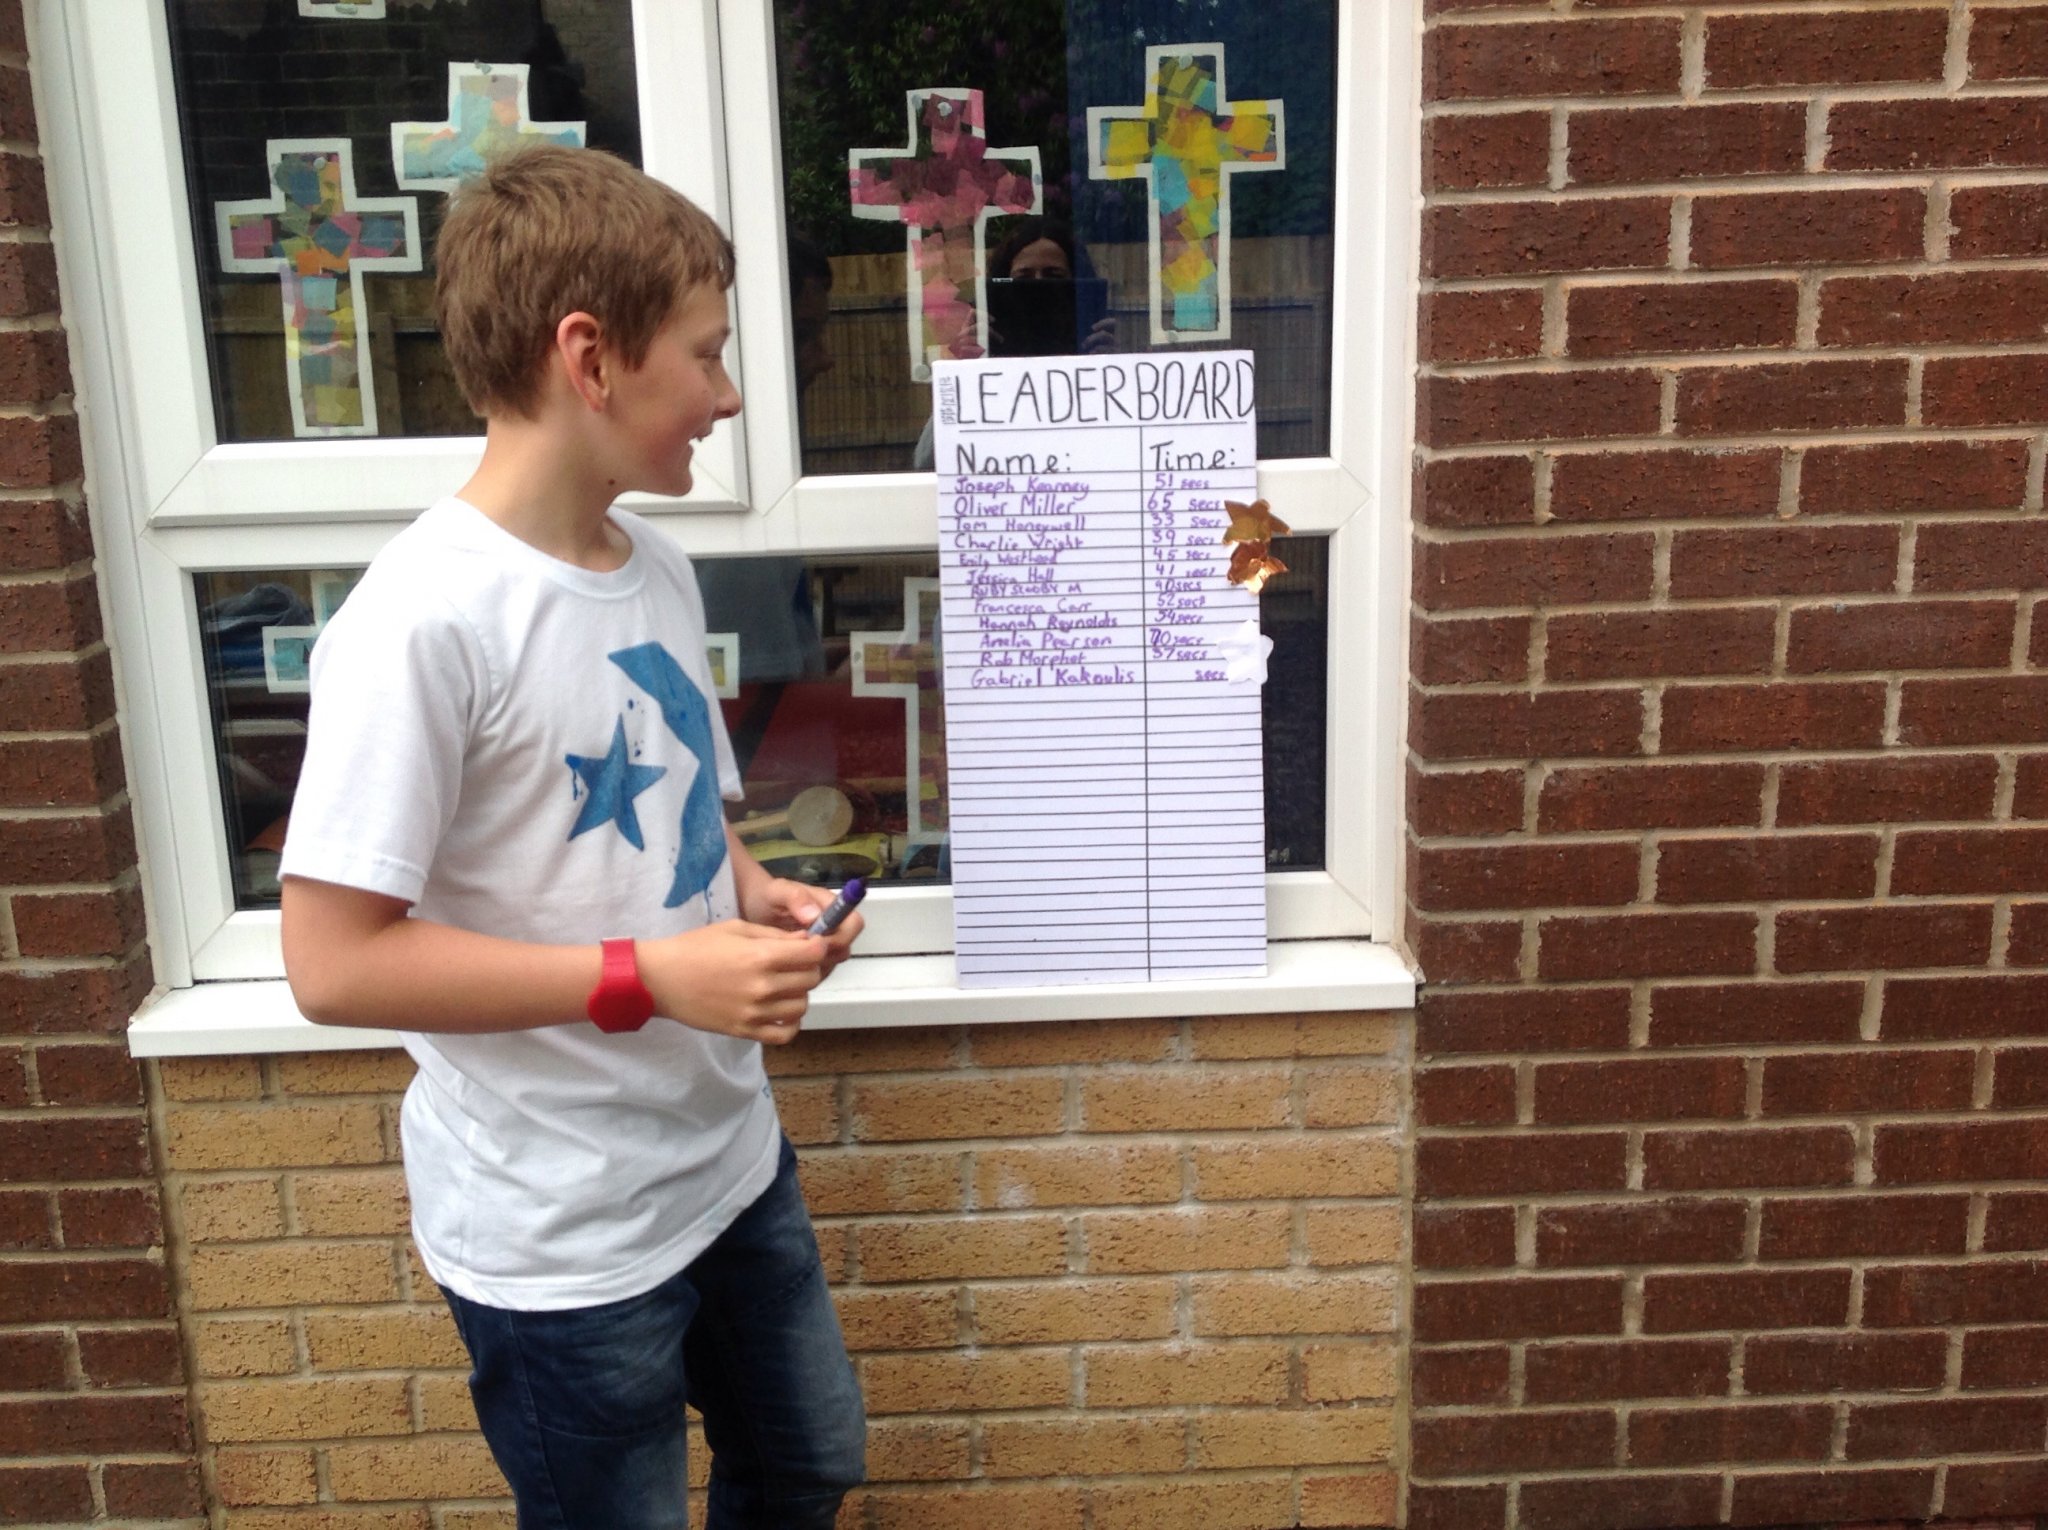 LEADERBOARD
Name: Time:
Joseph Kearney 51 secs
Oliver Miller 65 secs
Tom Honeywell 33 secs
Charlie Wright 39 secs
Emily Westhead 45 secs
Jessica Hall 41 secs
RUBY M 40secs
Francesca Carr 52 secs
Hannah Reynolds 54secs
Amelia Pearson 70secs
Rob Morphet 37secs
Gabriel Kakoulis secs